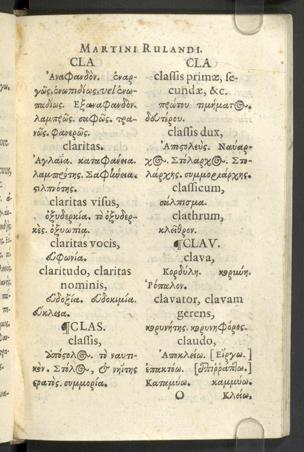 MARTINI RULANDI.
CLA
Ἀναφανδόν. ἐναρ-
γῶς. ἐνωπιδίως, vel ἐνω-
παδίως. Ἐξαναφανδόν.
λαμπρῶς. σαφῶς. τρα-
νῶς. φανερῶς.
claritas.
Ἀγλαΐα. καταφάνεια.
λαμπρότης. Σαφήνεια.
στιλπνότης.
claritas visus,
ὀξυδερκία. τὸ ὀξυδερ-
κὲς. ὀξυωπία.
claritas vocis,
εὐφωνία.
claritudo, claritas
nominis,
εὐδοξία. εὐδοκιμία.
εὔκλεια.
¶CLAS.
classis,
τὸ ναυτι-
κὸν. Στόλος, ὁ νηΐτης
στρατὸς. συμμορία.
CLA
classis primæ, se-
cundæ, &c.
πρώτου τιμήματος.
δευτέρου.
classis dux,
Ἀποστολεύς. Ναύαρ-
χος. Στόλαρχος. Στο-
λάρχης. συμμοριάρχης.
classicum,
σάλπισμα.
clathrum,
κλεῖθρον.
¶CLAV.
clava,
Κορδύλη. κορύνη.
Ῥόπαλον.
clavator, clavam
gerens,
κορυνήτης. κορυνηφόρος.
claudo,
Ἀποκλείω. [Εἴργω.]
Καταμύω. καμμύω.
O Κλείω.